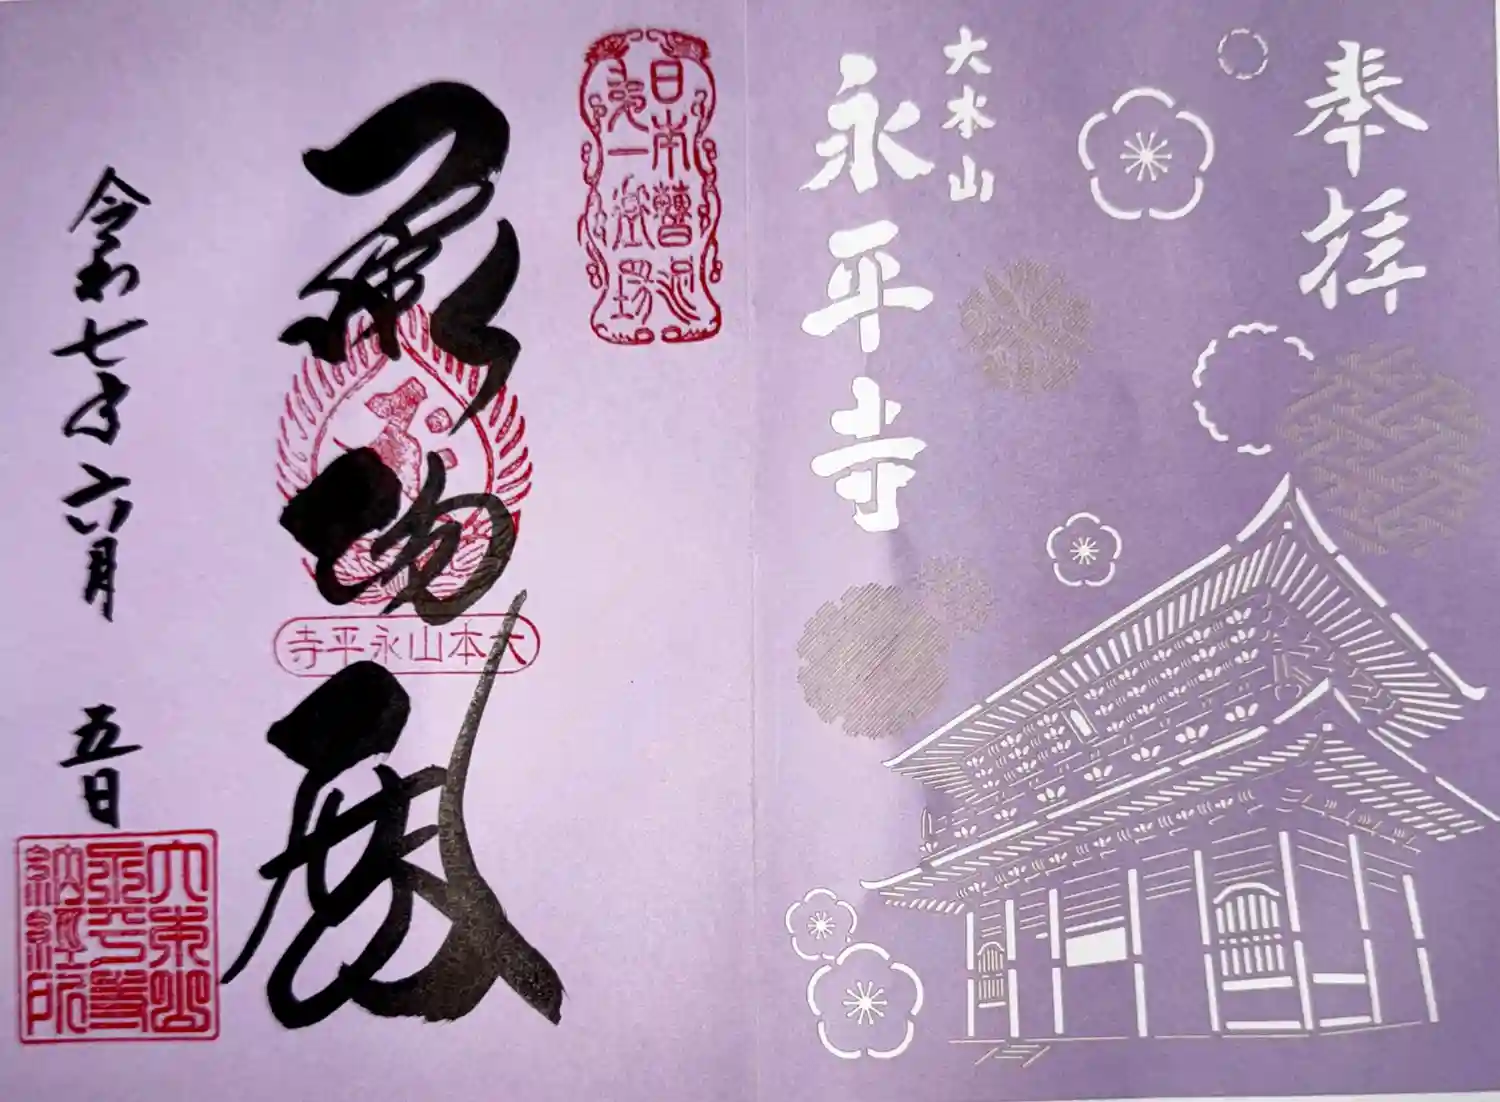 奉拝
大本山
永平寺
日本曹洞
第一道場
承陽殿
大本山永平寺
令和七年六月五日
大本山
永平寺
納経所